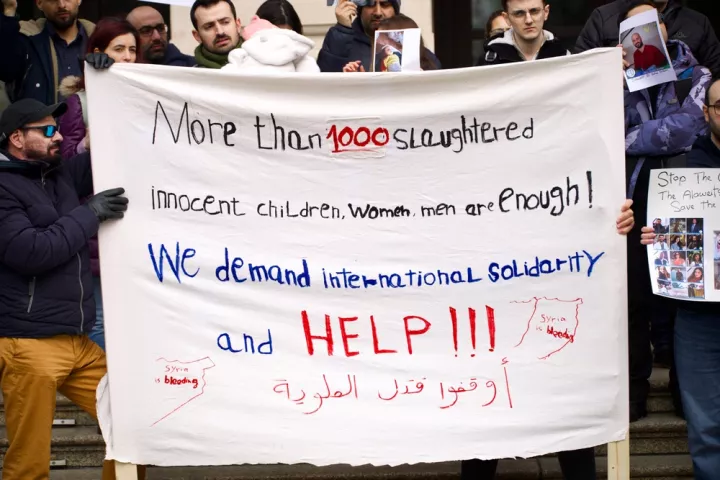 More than 1000 slaughtered
innocent children, women, men are enough!
We demand international solidarity
and HELP!!!
Syria
is bleeding
Syria
is bleeding
أوقفوا قتل العلوية
Stop The
The Alawit
Save The